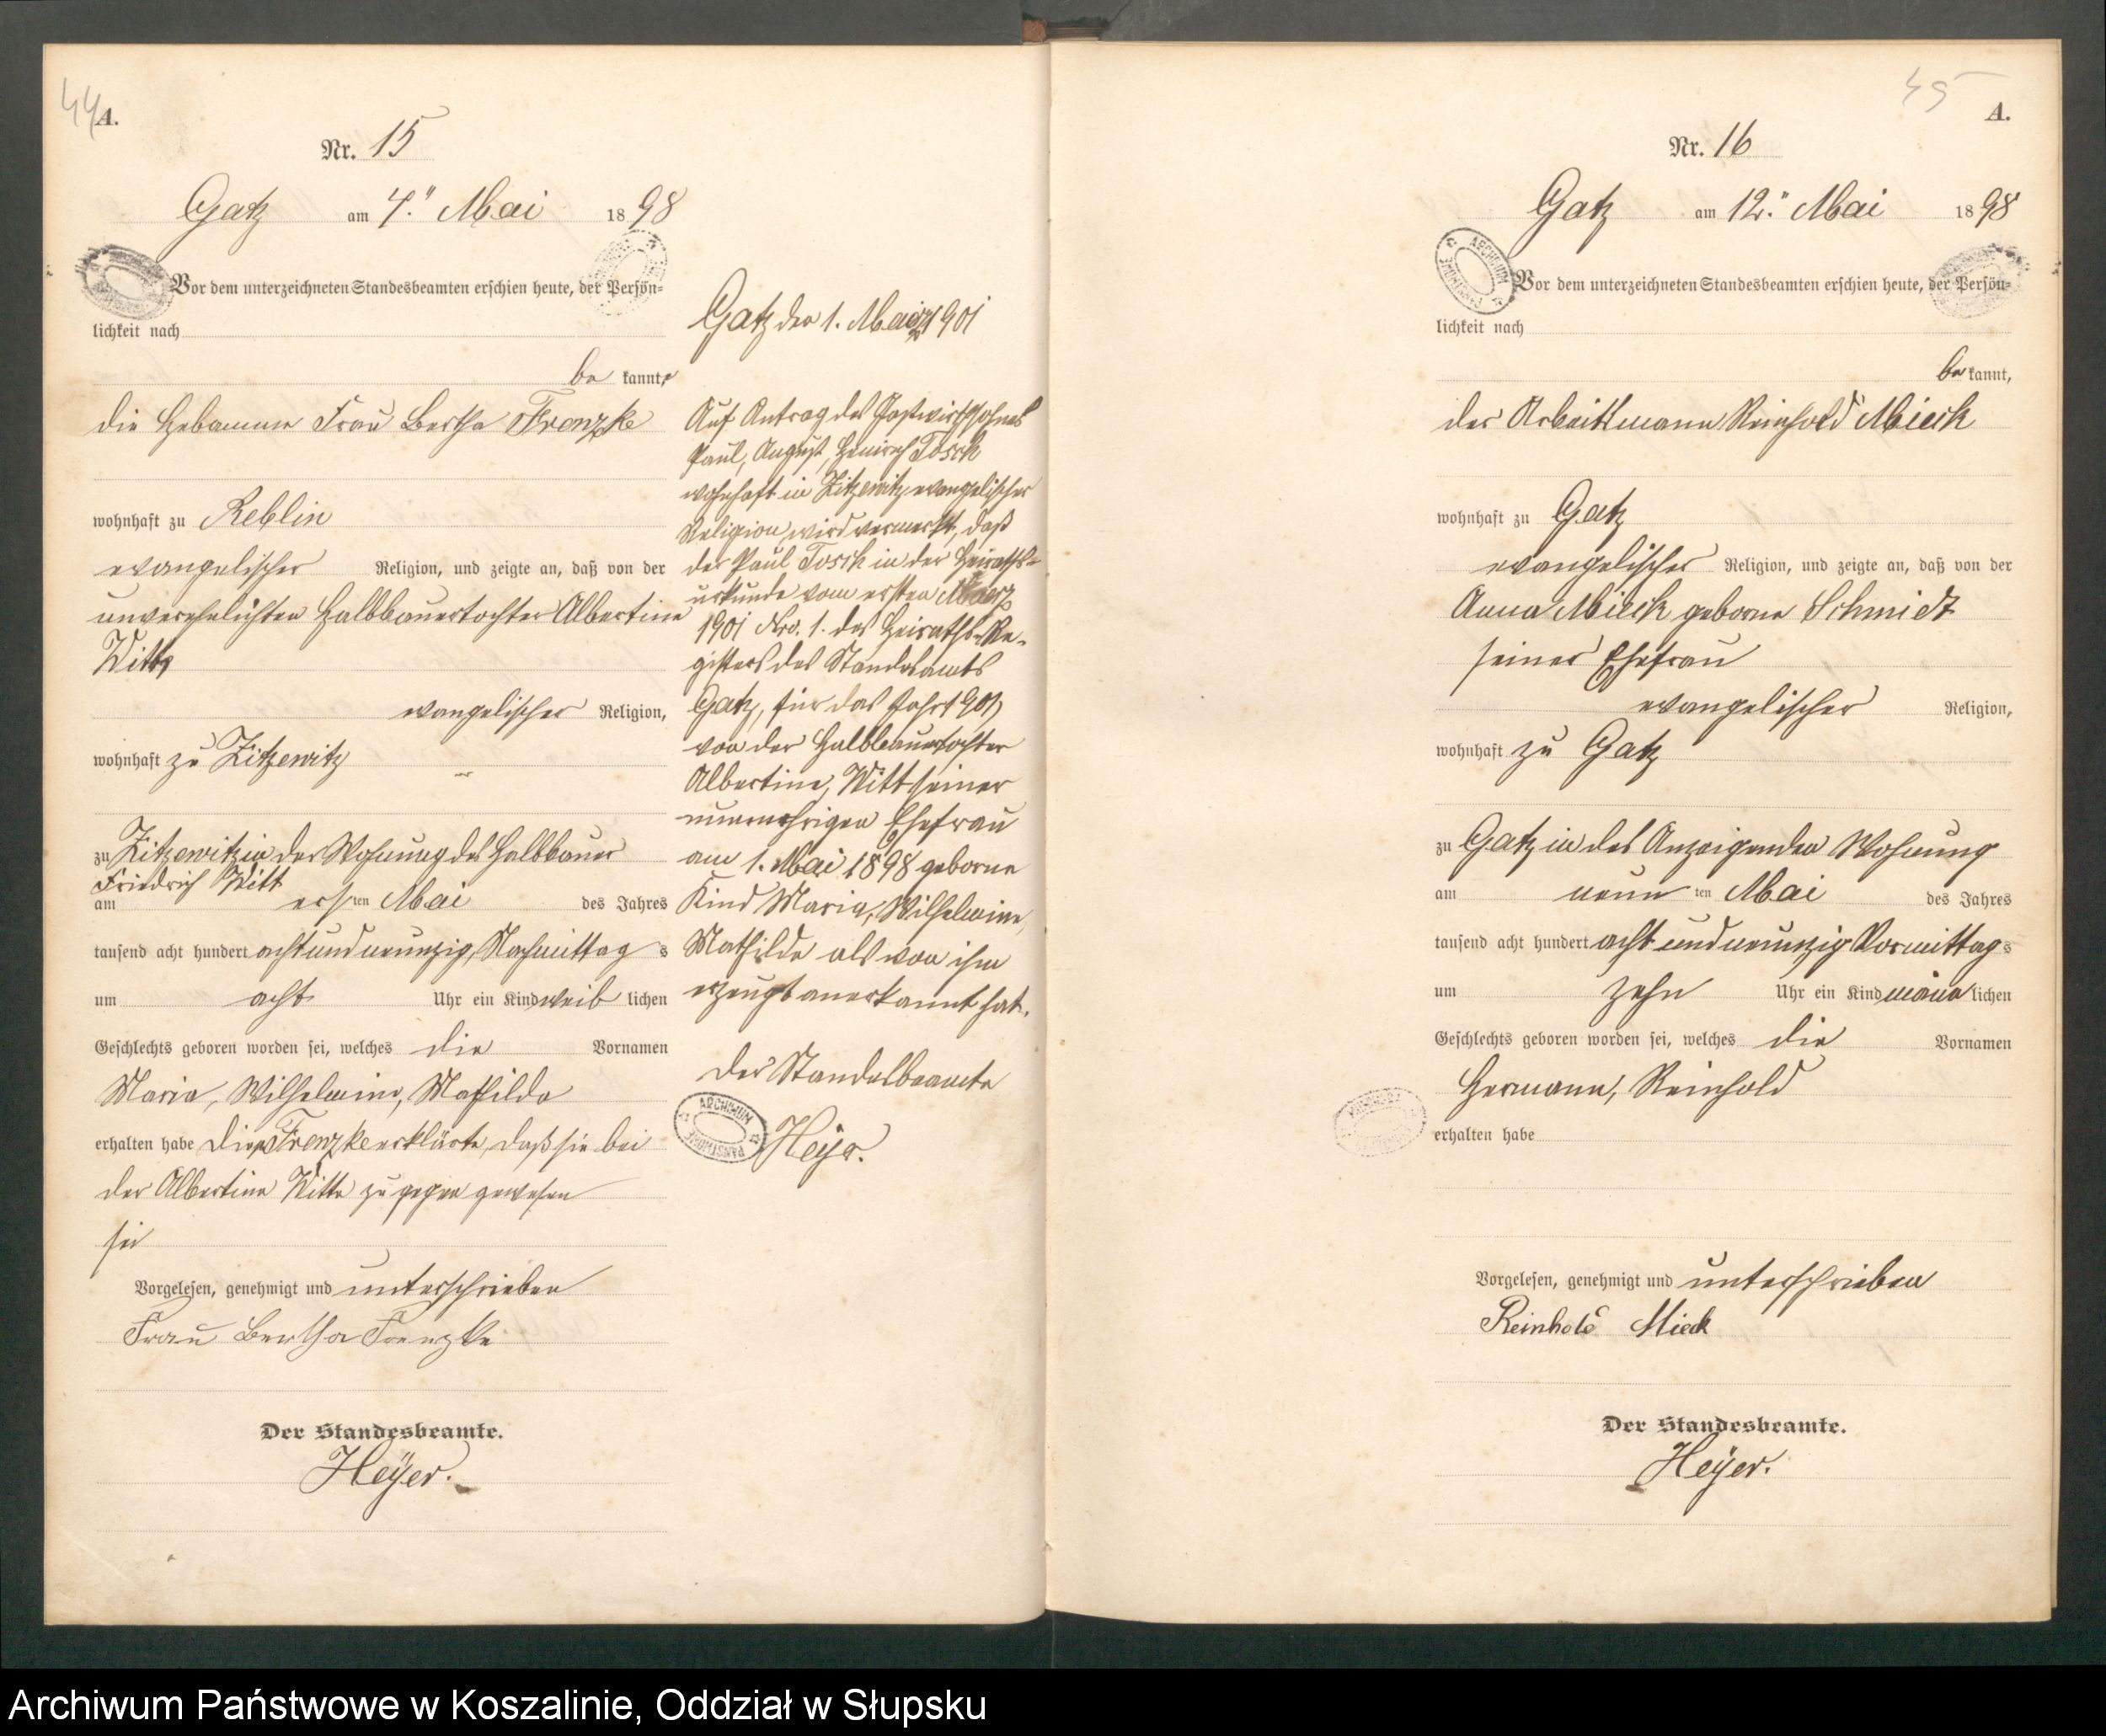 44
A.
Nr. 15
Gatz am 4.ten Mai 1898
Vor dem unterzeichneten Standesbeamten erschien heute, der Persön-
lichkeit nach
be kannte
die Hebamme Frau Bertha Frenzke
wohnhaft zu Reblin
evangelischer Religion, und zeigte an, daß von der
unverehelichten Halbbauertochter Albertine
Witt
evangelischer Religion,
wohnhaft zu Zitzewitz
zu Zitzewitz in der Wohnung des Halbbauer
Friedrich Witt
am ersten Mai des Jahres
tausend acht hundert achtundneunzig, Nachmittag s
um acht Uhr ein Kind weib lichen
Geschlechts geboren worden sei, welches die Vornamen
Maria, Wilhelmine, Mathilde
erhalten habe die Frenzke erklärte, daß sie bei
der Albertine Witte zugegen gewesen
sei
Vorgelesen, genehmigt und unterschrieben
Frau Bertha Frenzke
Der Standesbeamte.
Heyer.
Gatz den 1. Maerz 1901
Auf Antrag des Gastwirthsohnes
Paul, August, Heinrich Tosch
wohnhaft in Zitzewitz evangelischer
Religion, wird vermerkt, daß
der Paul Tosch in der Heiraths-
urkunde vom ersten Maerz
1901 Nro. 1. des Heiraths-Re-
gisters des Standesamts
Gatz, für das Jahr 1901,
von der Halbbauertochter
Albertine, Witt seiner
nunmehrigen Ehefrau
am 1. Mai 1898 geborne
Kind Maria, Wilhelmine,
Mathilde als von ihm
erzeugt anerkannt hat.
Der Standesbeamte
Heyer.
ARCHIWUM PAŃSTWOWE
45
A.
Nr. 16
Gatz am 12.ten Mai 1898
ARCHIWUM PAŃSTWOWE
Vor dem unterzeichneten Standesbeamten erschien heute, der Persön-
lichkeit nach
be kannt,
der Arbeitsmann Reinhold Mieck
wohnhaft zu Gatz
evangelischer Religion, und zeigte an, daß von der
Anna Mieck geborne Schmidt
seiner Ehefrau
evangelischer Religion,
wohnhaft zu Gatz
zu Gatz in des Anzeigenden Wohnung
am neun ten Mai des Jahres
tausend acht hundert acht und neunzig Vormittag s
um zehn Uhr ein Kind männ lichen
Geschlechts geboren worden sei, welches die Vornamen
Hermann, Reinhold
erhalten habe
Vorgelesen, genehmigt und unterschrieben
Reinhold Mieck
Der Standesbeamte.
Heyer.
Archiwum Państwowe w Koszalinie, Oddział w Słupsku